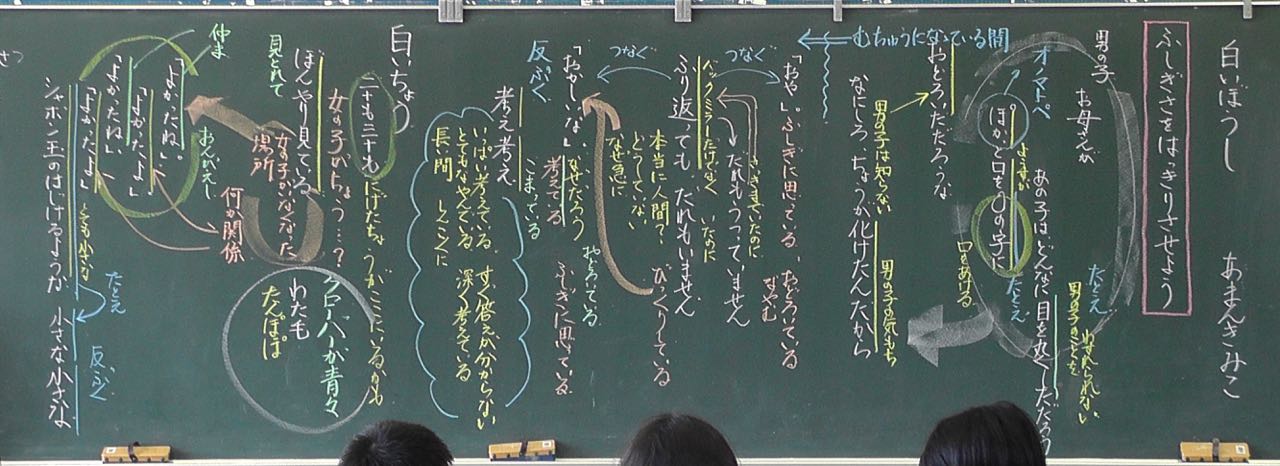 白いぼうし
あまんきみこ
ふしぎさをはっきりさせよう
男の子
お母さんが
たとえ
男の子のことを
わすれられない
あの子は、どんなに目を丸くしただろう
オノマトペ
ようすが
ぽかっと口をOの字に
たとえ
口をあける
おどろいただろうな
男の子は知らない
男の子の気もち
なにしろ、ちょうが化けたんだから
むちゅうになっている間
「おや」。ふしぎに思っている、おどろている
なやむ
つなぐ
だれもうつっていません
バックミラーだけでなく
いたのに
ふり返っても、だれもいません
びっくりしている
つなぐ
本当に人間？
どうしていない
なぜ急に
「おかしいな」
なぜだろう
考えてる
おどろいている
ふしぎに思っている
反ぷく
こまっている
考え考え
いっぱい考えている。
すぐ答えが分からない
とてもなやんでいる
深く考えている
長間
白いちょう
二十も三十も
にげたちょうがここにいるかも
女の子がちょう…？
クローバーが青々
わたも
たんぽぽ
ぼんやり見ている。
見とれて
女の子がいなくなった
場所
何か関係
仲ま
「よかったね。」
「よかったよ」
「よかったね」
「よかったよ」
とても小さな
たとえ
反ぷく
シャボン玉のはじけるような
小さな小さな